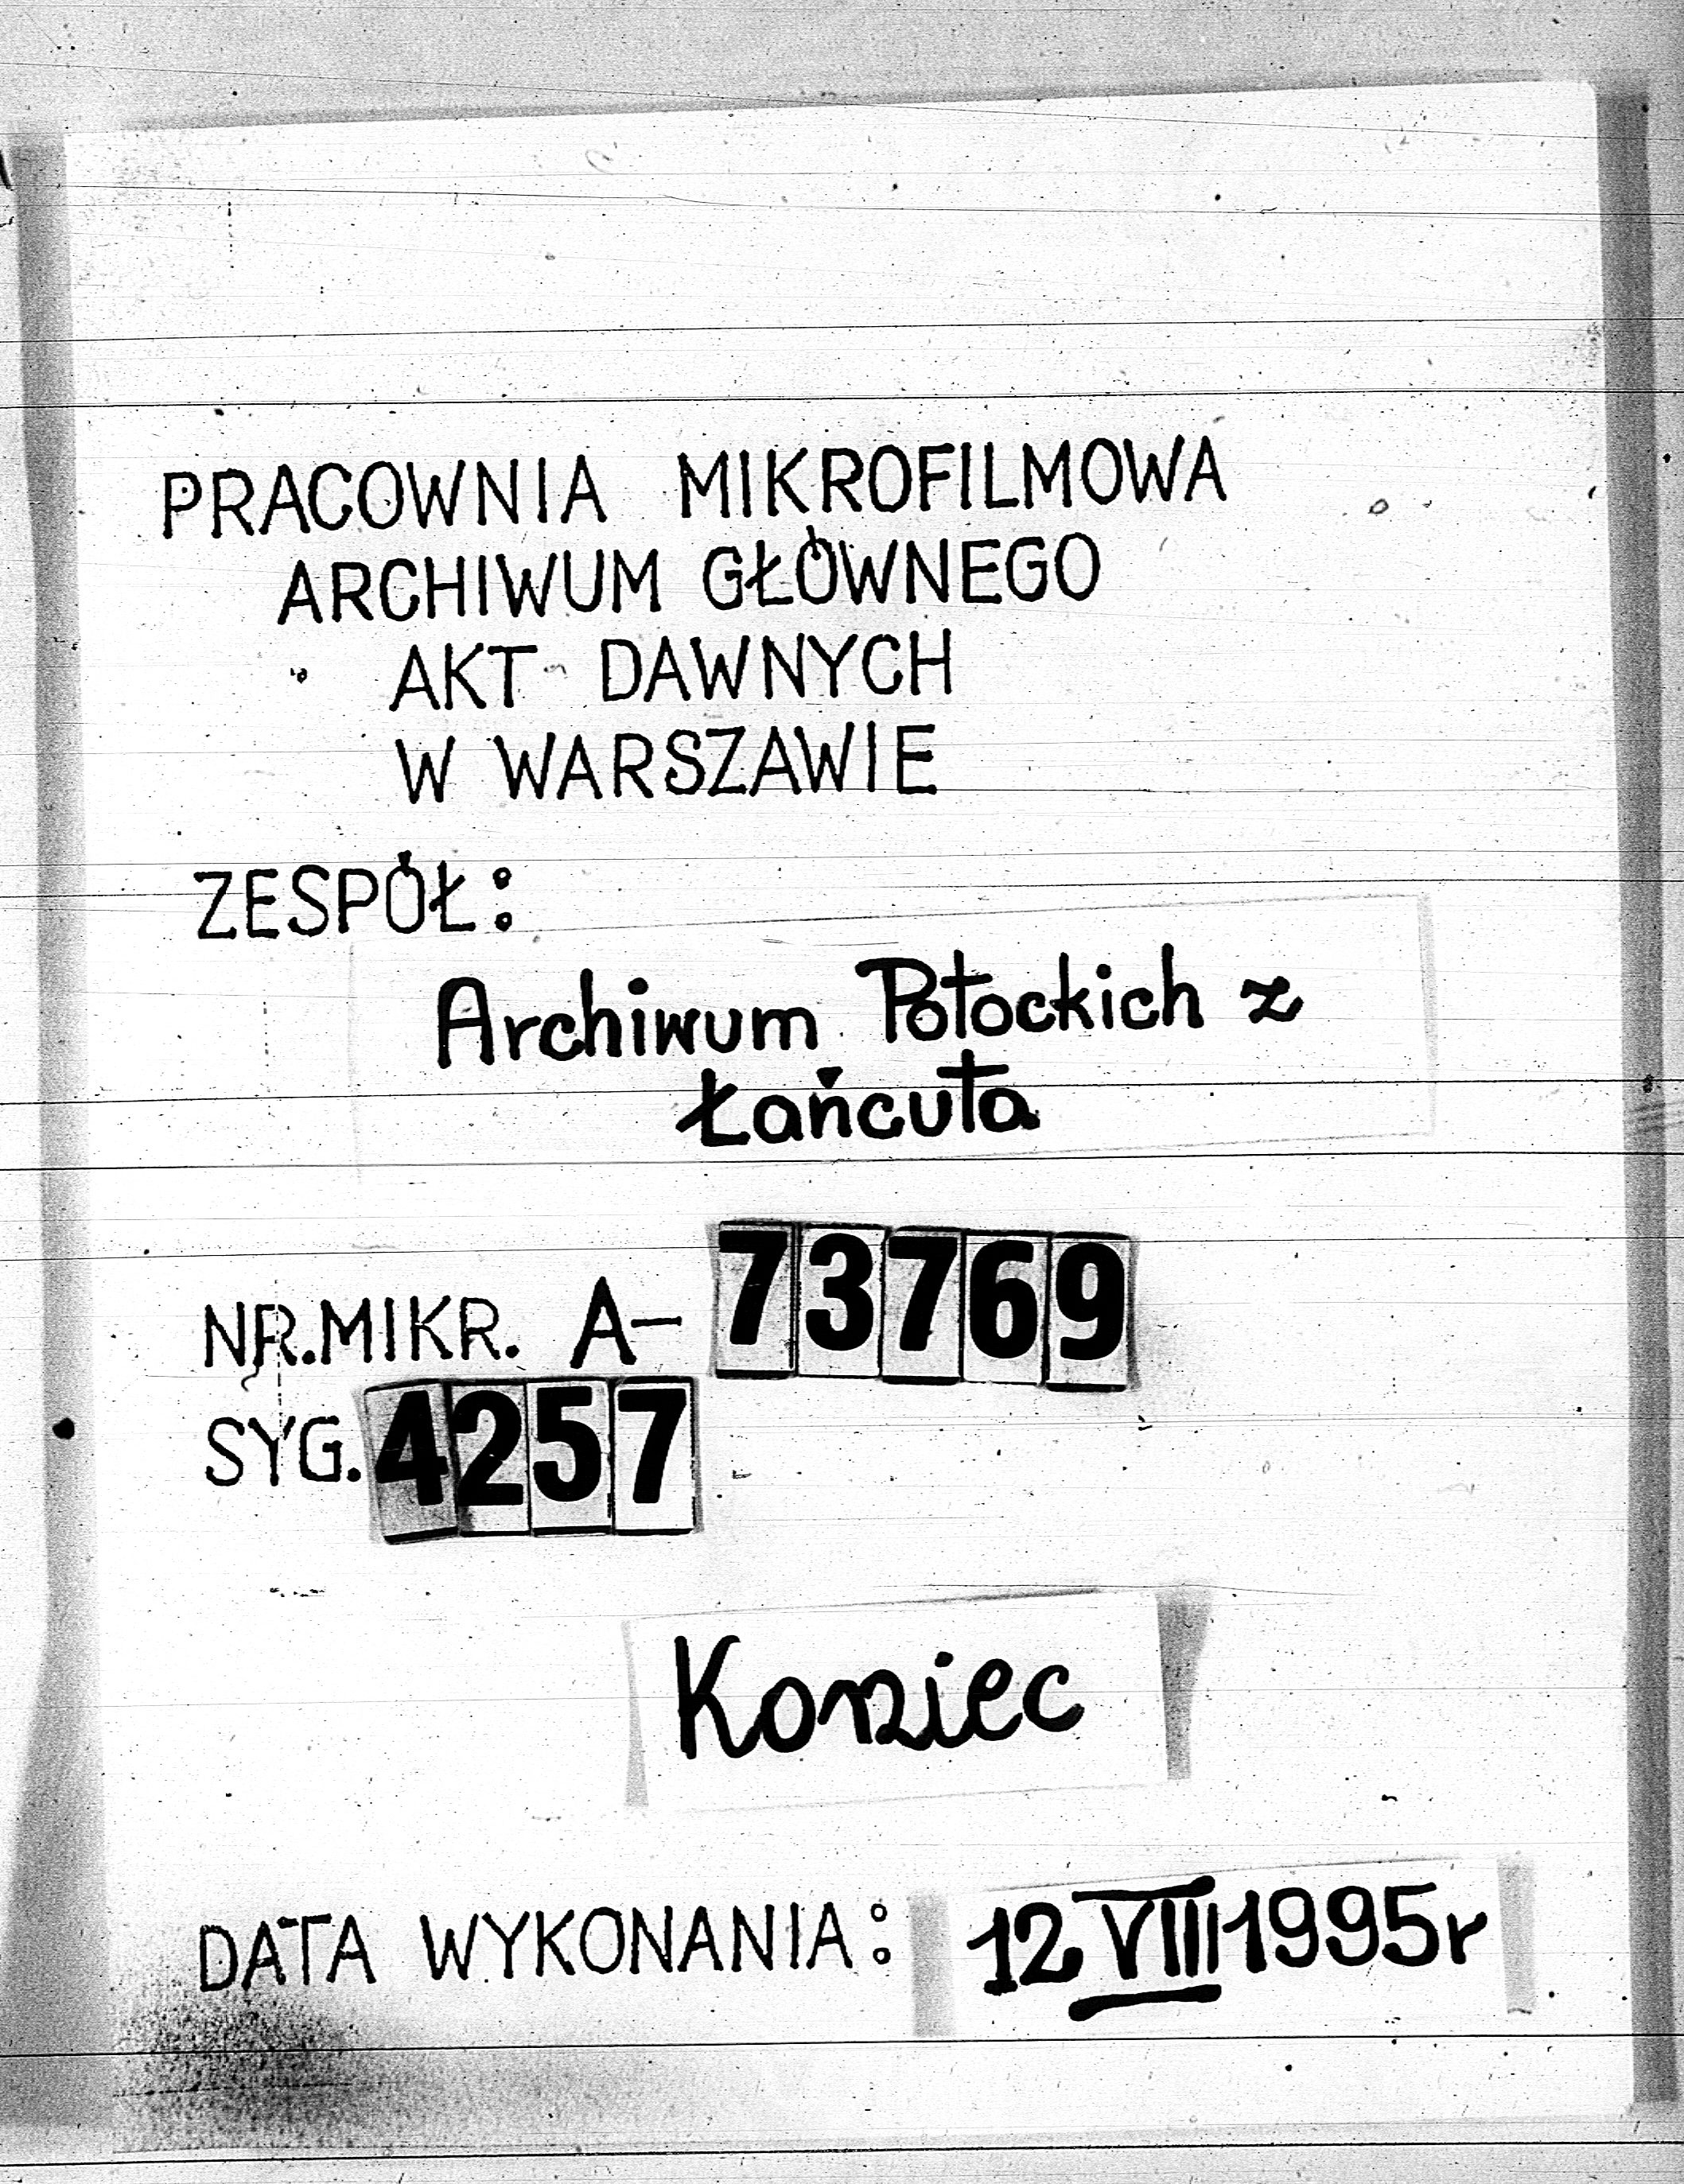 PRACOWNIA MIKROFILMOWA
ARCHIWUM GŁÓWNEGO
AKT DAWNYCH
W WARSZAWIE
ZESPÓŁ:
Archiwum Potockich z
Łańcuta
NR.MIKR. A- 73769
SYG. 4257
Koniec
DATA WYKONANIA: 12 VIII 1995r